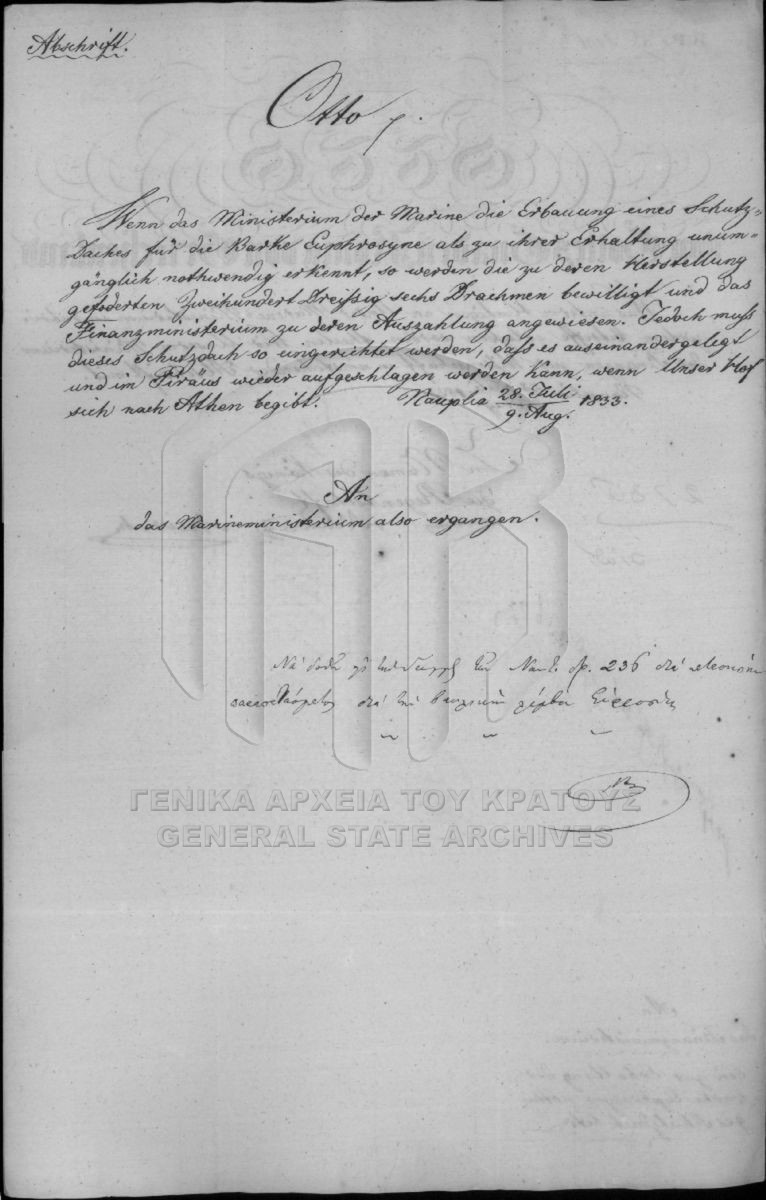 Abschrift.
Otto
Wenn das Ministerium der Marine die Erbauung eines Schutz-
Daches für die Barke Euphrosyne als zu ihrer Erhaltung unum-
gänglich nothwendig erkennt, so werden die zu deren Herstellung
gefoderten Zweihundert Dreißig sechs Drachmen bewilligt und das
Finanzministerium zu deren Auszahlung angewiesen. Jedoch muß
dieses Schutzdach so eingerichtet werden, daß es auseinandergelegt
und im Piräus wieder aufgeschlagen werden kann, wenn Unser Hof
sich nach Athen begibt. Nauplia 28. Juli / 9. Aug. 1833.
An
das Marineministerium also ergangen.
Νὰ δοθῇ Ναυτ. δρ. 236 διὰ
διὰ τὴν βασιλικὴν λέμβον
ΓΕΝΙΚΑ ΑΡΧΕΙΑ ΤΟΥ ΚΡΑΤΟΥΣ
GENERAL STATE ARCHIVES